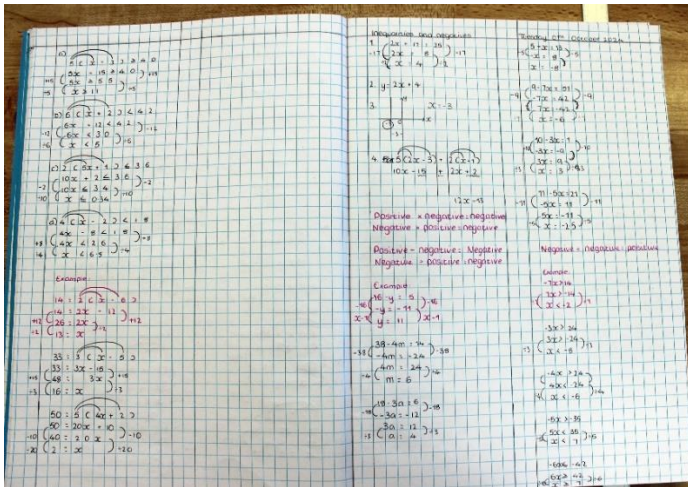 a)
5(x - 3) ≥ 40
5x - 15 ≥ 40
+15 5x ≥ 55 +15
÷5 x ≥ 11 ÷5
b) 6(x + 2) < 42
6x - 12 < 42
-12 6x < 30 -12
÷6 x < 5 ÷5
c) 2(5x + 1) ≤ 36
10x + 2 ≤ 36
-2 10x ≤ 34 -2
d) 4(x - 2) < 18
4x - 8 < 18
+8 4x < 26 +8
÷4 x < 6.5 ÷4
Example:
14 = 2(x - 6)
14 = 2x - 12
+12 26 = 2x +12
÷2 13 = x ÷2
33 = 3(x - 5)
33 = 3x - 15
+15 48 = 3x +15
÷3 16 = x ÷3
50 = 5(4x + 2)
50 = 20x + 10
-10 40 = 20x -10
÷20 2 = x ÷20
Inequalities and negatives
1. 2x + 17 = 25
-17 2x = 8 -17
x = 4 ÷2
2. y = 2x + 4
3. x = -3
4. 5(2x - 3) + 2(x + 1)
10x - 15 + 2x + 2
12x - 13
Positive x negative = negative
Negative x positive = negative
Positive ÷ negative = Negative
Negative ÷ positive = negative
Example
16 - y = 5
-16 -y = -11 -16
y = 11 x-1
38 - 4m = 14
-38 -4m = -24 -38
4m = 24
÷4 m = 6 ÷4
18 - 3a = 6
-18 -3a = -12 -18
3a = 12
÷3 a = 4 ÷3
Tuesday October 2024
5 - x = 13
-x = 8
x = -8
9 - 7x = 51
-9 -7x = 42 -9
x = -6
10 - 3x = 1
-3x = -9 -10
3x = 9
÷3 x = 3 ÷3
11 - 5x = 21
-11
Negative ÷ negative = positive
Example
-7x > 14
7x > -14
x < -2
-3x > 24
3x > -24
÷3 x < -8
-4x > 24
4x < -24
x < -6
-5x > -35
5x < 35
x < 7 ÷5